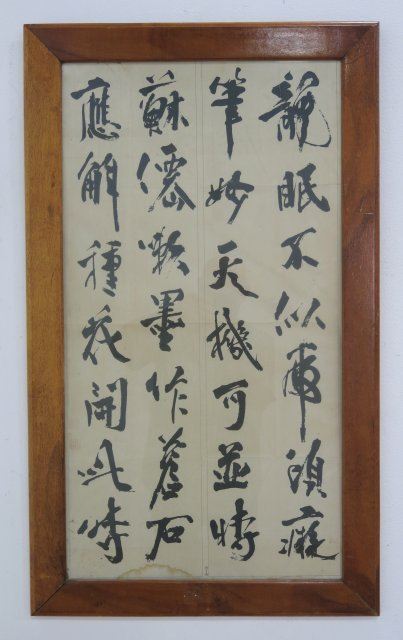 龍眠不似虎頭癡
筆妙天機可並時
蘇僊漱墨作蒼石
應解種花開此詩